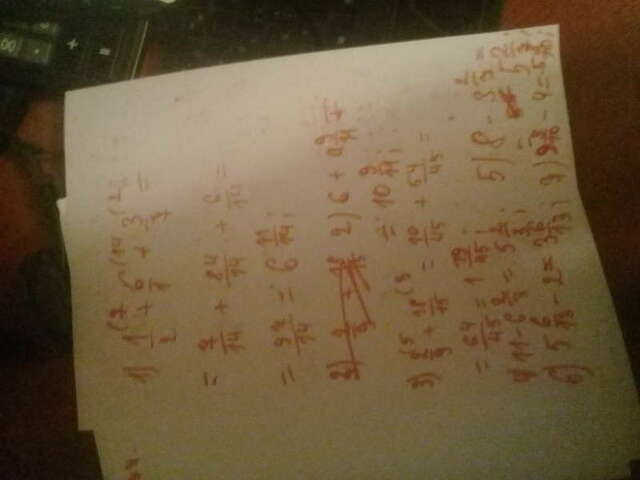 1) 1/2 (7 + 6/1 (14 + 3/7 (2 =
= 7/14 + 84/14 + 6/14 =
= 97/14 = 6 11/14;
2) 6 + 4 9/11 =
= 10 9/11;
3) 2/9 (5 + 18/15 (3 = 10/45 + 54/45 =
= 64/45 = 1 19/45;
4) 11 - 6 2/3 = 5 2/3;
5) 8 - 3 2/3 =
= 5 2/3;
6) 5 6/13 - 2 = 3 6/13;
7) 9 3/10 - 4 = 5 3/10;